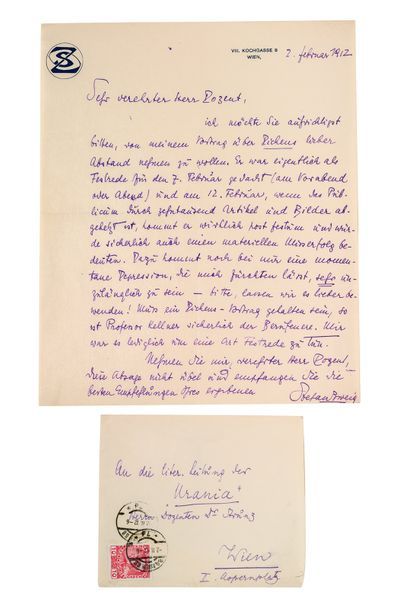 SZ
VIII. KOCHGASSE 8
WIEN,
2. februar 1912
Sehr verehrter Herr Dozent,
ich möchte Sie aufrichtigst
bitten, von meinem Vortrag über Dickens lieber
Abstand nehmen zu wollen. Er war eigentlich als
Festrede für den 7. Februar gedacht (am Vorabend
oder Abend) und am 12. Februar, wenn das Pub-
licum durch zehntausend Artikel und Bilder ab-
gehetzt ist, kommt er wirklich post festum und wür-
de sicherlich auch einen materiellen Misserfolg be-
deuten. Dazu kommt noch bei mir eine momen-
tane Depression, die mich fürchten lässt, sehr un-
zulänglich zu sein – bitte, lassen wir es lieber be-
wenden! Muss ein Dickens-Vortrag gehalten sein, so
ist Professor Kellner sicherlich der Berufenere. Mir
war es lediglich um eine Art Festrede zu tun.
Nehmen Sie mir, verehrter Herr Dozent,
diese Absage nicht übel und empfangen Sie die
besten Empfehlungen Ihres ergebenen
Stefan Zweig
An die liter. Leitung der
"Urania"
Herrn Dozenten Dr
Wien
I. Aspernplatz